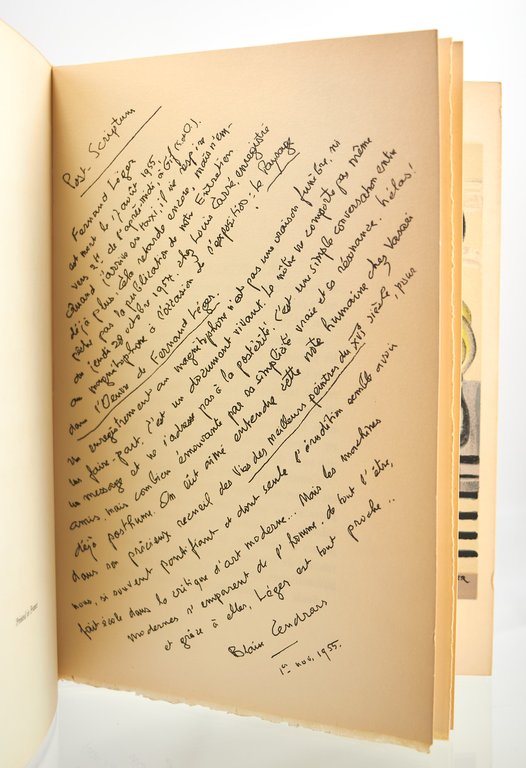 Post-Scriptum
Fernand Léger
est mort le 17 août 1955.
vers 2 H. de l'après-midi à Gif (S. & O.).
Quand j'arrivai en taxi, il ne respire
déjà plus. Cela retarde encore, mais n'em-
pêche pas la publication de notre Entretien
du jeudi 28 octobre 1954. chez Louis Carré, enregistré
au magnétophone à l'occasion de l'exposition : le Paysage
dans l'Œuvre de Fernand Léger.
Un enregistrement au magnétophone n'est pas une oraison funèbre, ni
un faire-part. C'est un document vivant. Le nôtre ne comporte pas même
un message et ne s'adresse pas à la postérité. C'est une simple conversation entre
amis, mais combien émouvante par sa simplicité vraie et sa résonance, hélas!
déjà posthume. On eût aimé entendre cette note humaine chez Vasari
dans son précieux recueil des Vies des meilleurs peintres du XVIe siècle, pour
nous, si souvent pontifiant et dont seule l'érudition semble avoir
fait école dans la critique d'art moderne... Mais les machines
modernes s'emparent de l'homme, de tout l'être,
et grâce à elles, Léger est tout proche..
Blaise Cendrars
1er nov. 1955.
Printed in France
ER